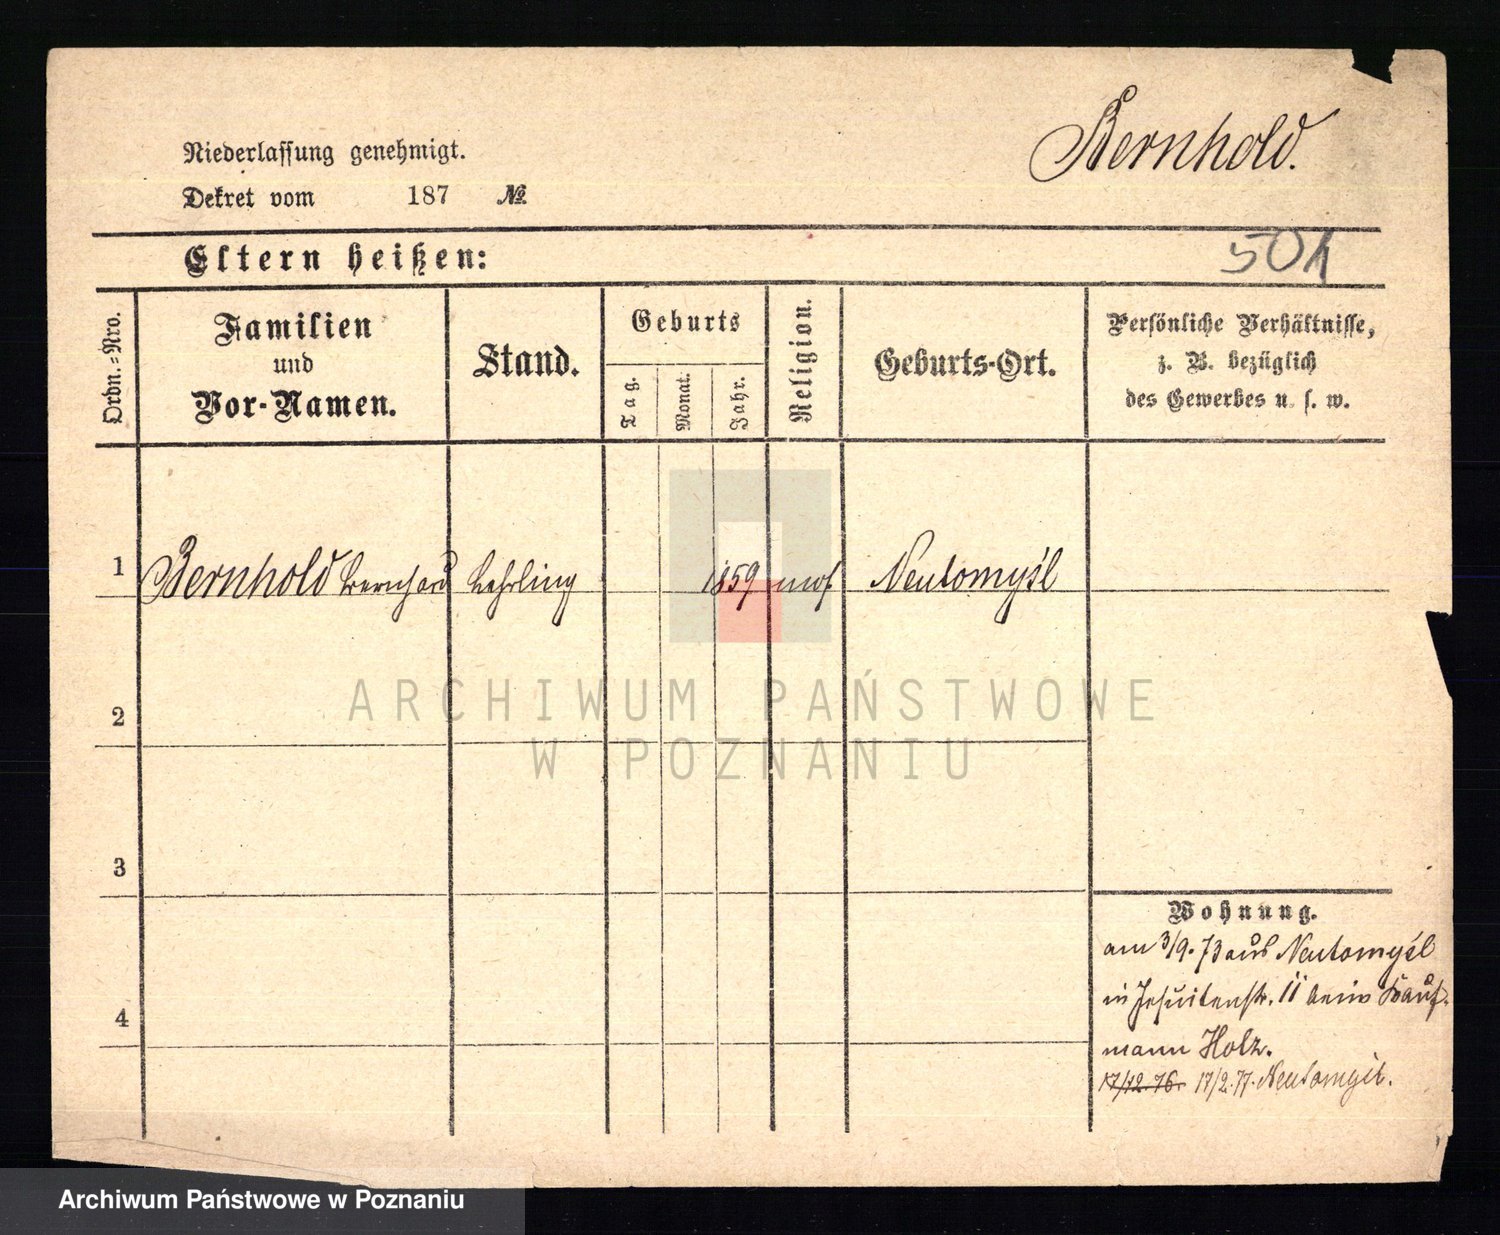 Bernhold.
Niederlassung genehmigt.
Dekret vom 187 №
Eltern heißen:
501
Ordn.=Nro.
Familien
und
Vor-Namen.
Stand.
Geburts
Tag.
Monat.
Jahr.
Religion.
Geburts-Ort.
Persönliche Verhältnisse,
z. B. bezüglich
des Gewerbes u. s. w.
1 Bernhold Bernhard Lehrling 1859 mos Neutomyśl
2
ARCHIWUM PAŃSTWOWE
W POZNANIU
3
Wohnung.
am 3/9. 73 aus Neutomyśl
in Jesuitenstr. 11 beim Kauf-
4
mann Holz.
17/12. 76. 17/2. 77. Neutomyśl.
Archiwum Państwowe w Poznaniu